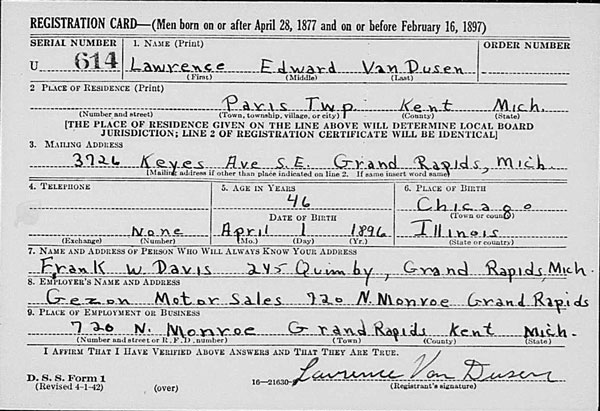 REGISTRATION CARD—(Men born on or after April 28, 1877 and on or before February 16, 1897)
SERIAL NUMBER 1. NAME (Print) ORDER NUMBER
U 614 Lawrence Edward Van Dusen
(First) (Middle) (Last)
2 PLACE OF RESIDENCE (Print)
Paris Twp. Kent Mich.
(Number and street) (Town, township, village, or city) (County) (State)
[THE PLACE OF RESIDENCE GIVEN ON THE LINE ABOVE WILL DETERMINE LOCAL BOARD
JURISDICTION; LINE 2 OF REGISTRATION CERTIFICATE WILL BE IDENTICAL]
3. MAILING ADDRESS
3726 Keyes Ave S.E. Grand Rapids, Mich.
[Mailing address if other than place indicated on line 2. If same insert word same]
4. TELEPHONE 5. AGE IN YEARS 6. PLACE OF BIRTH
46 Chicago
DATE OF BIRTH (Town or county)
None April 1 1896 Illinois
(Exchange) (Number) (Mo.) (Day) (Yr.) (State or country)
7. NAME AND ADDRESS OF PERSON WHO WILL ALWAYS KNOW YOUR ADDRESS
Frank W. Davis 245 Quimby, Grand Rapids, Mich.
8. EMPLOYER'S NAME AND ADDRESS
Gezon Motor Sales 720 N. Monroe Grand Rapids
9. PLACE OF EMPLOYMENT OR BUSINESS
720 N. Monroe Grand Rapids Kent Mich.
(Number and street or R. F. D. number) (Town) (County) (State)
I AFFIRM THAT I HAVE VERIFIED ABOVE ANSWERS AND THAT THEY ARE TRUE.
D. S. S. Form 1
(Revised 4-1-42) (over) 16—21630-2 Lawrence Van Dusen
(Registrant's signature)